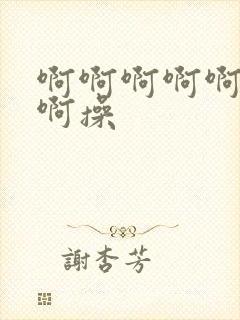 啊啊啊啊啊
啊操
謝杏芳